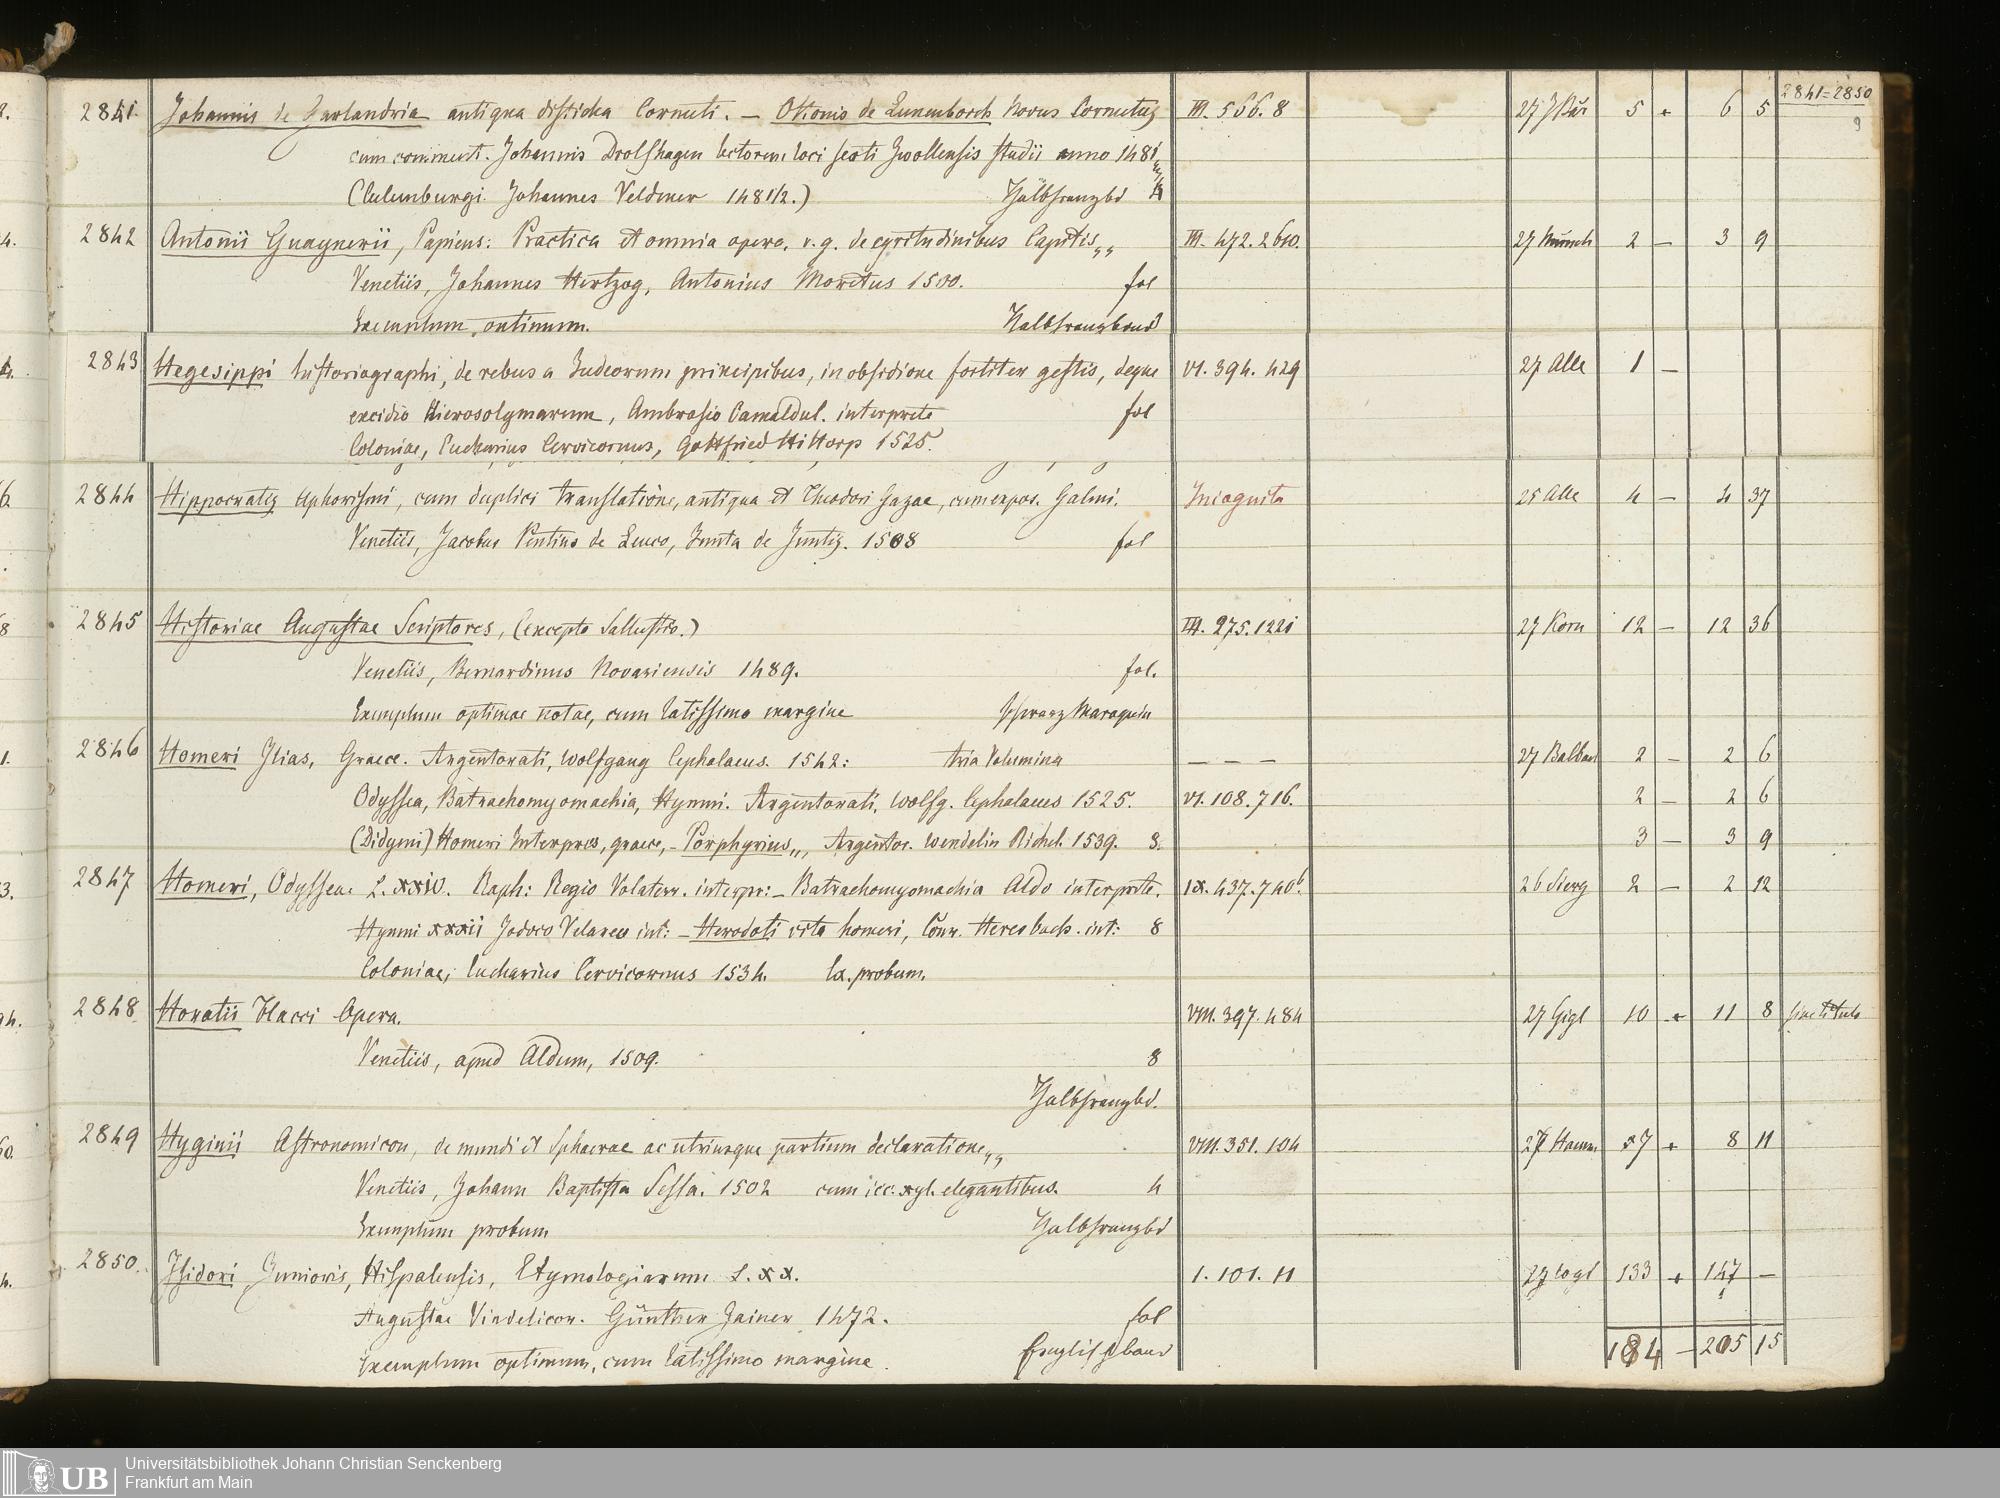 2841=2850
9
2841. Johannis de Garlandria antiqua disticha Cornuti. – Ottonis de Lunenborch Novus Cornutus III. 566. 8 27 5 6 5
cum comment. Johannis Drolshagen lectorem loci ferti Zwollensis studii anno 1481
(Culenburgi. Johannes Veldener 1481/2.) Halbfranzbd 4
2842 Antonii Guaynerii, Papiens: Practica et omnia opera, v. g. de egritudinibus Capitis,, III. 472. 2610. 27 Münch 2 – 3 9
Venetiis, Johannes Hertzog, Antonius Moretus 1500. fol
Exemplum optimum. Halbfranzband
2843 Hegesippi historiographi, de rebus a Judeorum principibus, in obsidione fortiter gestis, deque VI. 394. 429 27 Alle 1 –
excidio Hierosolymarum, Ambrosio Camaldul. interprete fol
Coloniae, Eucharius Cervicornus, Gottfried Hittorp 1525.
2844 Hippocratis Aphorismi, cum duplici translatione, antiqua et Theodori Gazae, cum expos. Galeni. Incognita 25 Alle 4 – 4 37
Venetiis, Jacobus Pentius de Leuco, Junta de Juntis. 1508 fol
2845 Historiae Augustae Scriptores, (excepto Sallustio.) III. 275. 1221 27 Korn 12 – 12 36
Venetiis, Bernardinus Novariensis 1489. fol.
Exemplum optimae notae, cum latissimo margine schwarz Maroquin
2846 Homeri Ilias, Graece. Argentorati, Wolfgang Cephalaeus. 1542: tria Volumina – – – 27 2 – 2 6
Odyssea, Batrachomyomachia, Hymni. Argentorati, Wolfg. Cephalaeus 1525. VI. 108. 716. 2 – 2 6
(Didymi) Homeri Interpres, graece, – Porphyrius,,, Argentor. Wendelin Richel. 1539. 8. 3 – 3 9
2847 Homeri, Odyssea: L. xxiv. Raph: Regio Volaterr. interpr: – Batrachomyomachia Aldo interprete. IX. 437. 740b. 26 2 – 2 12
Hymni xxxii Jodoco Velareo int: – Herodoti vita homeri, Conr. Heresbach. int: 8
Coloniae, Eucharius Cervicornus 1534. Ex. probum.
2848 Horatii Flacci Opera. VIII. 397. 484 27 10 11 8 sine titulo
Venetiis, apud Aldum, 1509. 8
Halbfranzbd.
2849 Hyginii Astronomicon, de mundi et Sphaerae ac utriusque partium declaratione,,, VIII. 351. 104 27 7 8 11
Venetiis, Johann Baptista Sessa. 1502 cum icc. xyl. elegantibus. 4
Exemplum probum Halbfranzbd
2850. Isidori Junioris, Hispalensis, Etymologiarum L. xx. I. 101. 11 27 133 147 –
Augustae Vindelicor. Günther Zainer 1472. fol
Exemplum optimum, cum latissimo margine. Englischband
184 – 205 15
UB
Universitätsbibliothek Johann Christian Senckenberg
Frankfurt am Main